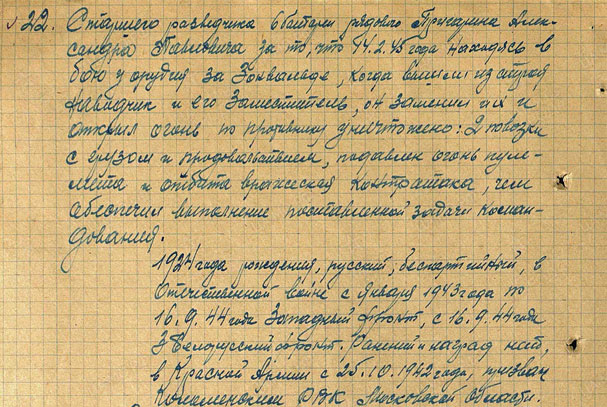 22. Старшего разведчика 6 батареи рядового Причарина Алек-
сандра Павловича за то, что 14.2.45 года находясь в
бою у орудия за, когда вышли из строя
наводчик и его заместитель, он заменил их и
открыл огонь по противнику уничтожено: 2 повозки
с грузом и продовольствием, подавлен огонь пуле-
мета и отбита вражеская контратака, чем
обеспечил выполнение поставленной задачи коман-
дования.
1924 года рождения, русский, беспартийный, в
Отечественной войне с января 1943 года по
16.9.44 года Западный фронт, с 16.9.44 года
3 Белорусский фронт. Ранений и наград нет,
в Красной Армии с 25.10.1942 года, призван
Коломенским РВК Московской области.